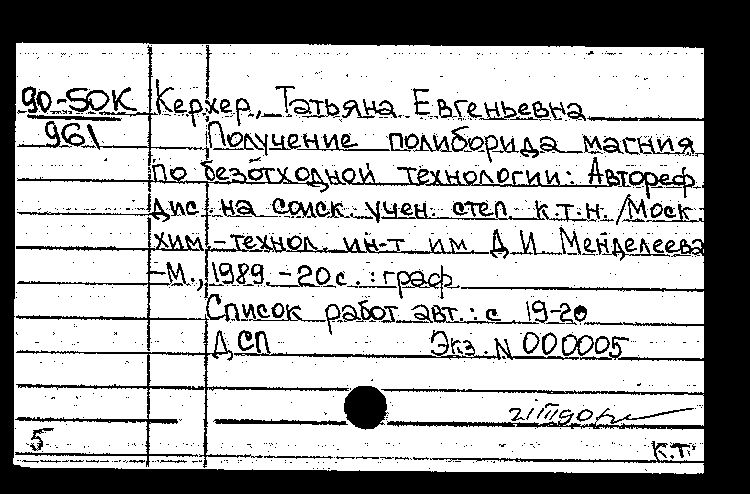 90-50К Керхер, Татьяна Евгеньевна
961 Получение полиборида магния
по безотходной технологии: Автореф.
дис. на соиск. учен. степ. к.т.н. /Моск.
хим.-технол. ин-т им. Д.И. Менделеева
-М., 1989. -20 с. : граф.
Список работ авт.: с 19-20
ДСП Экз. N 000005
21 III 90
5 К.Т